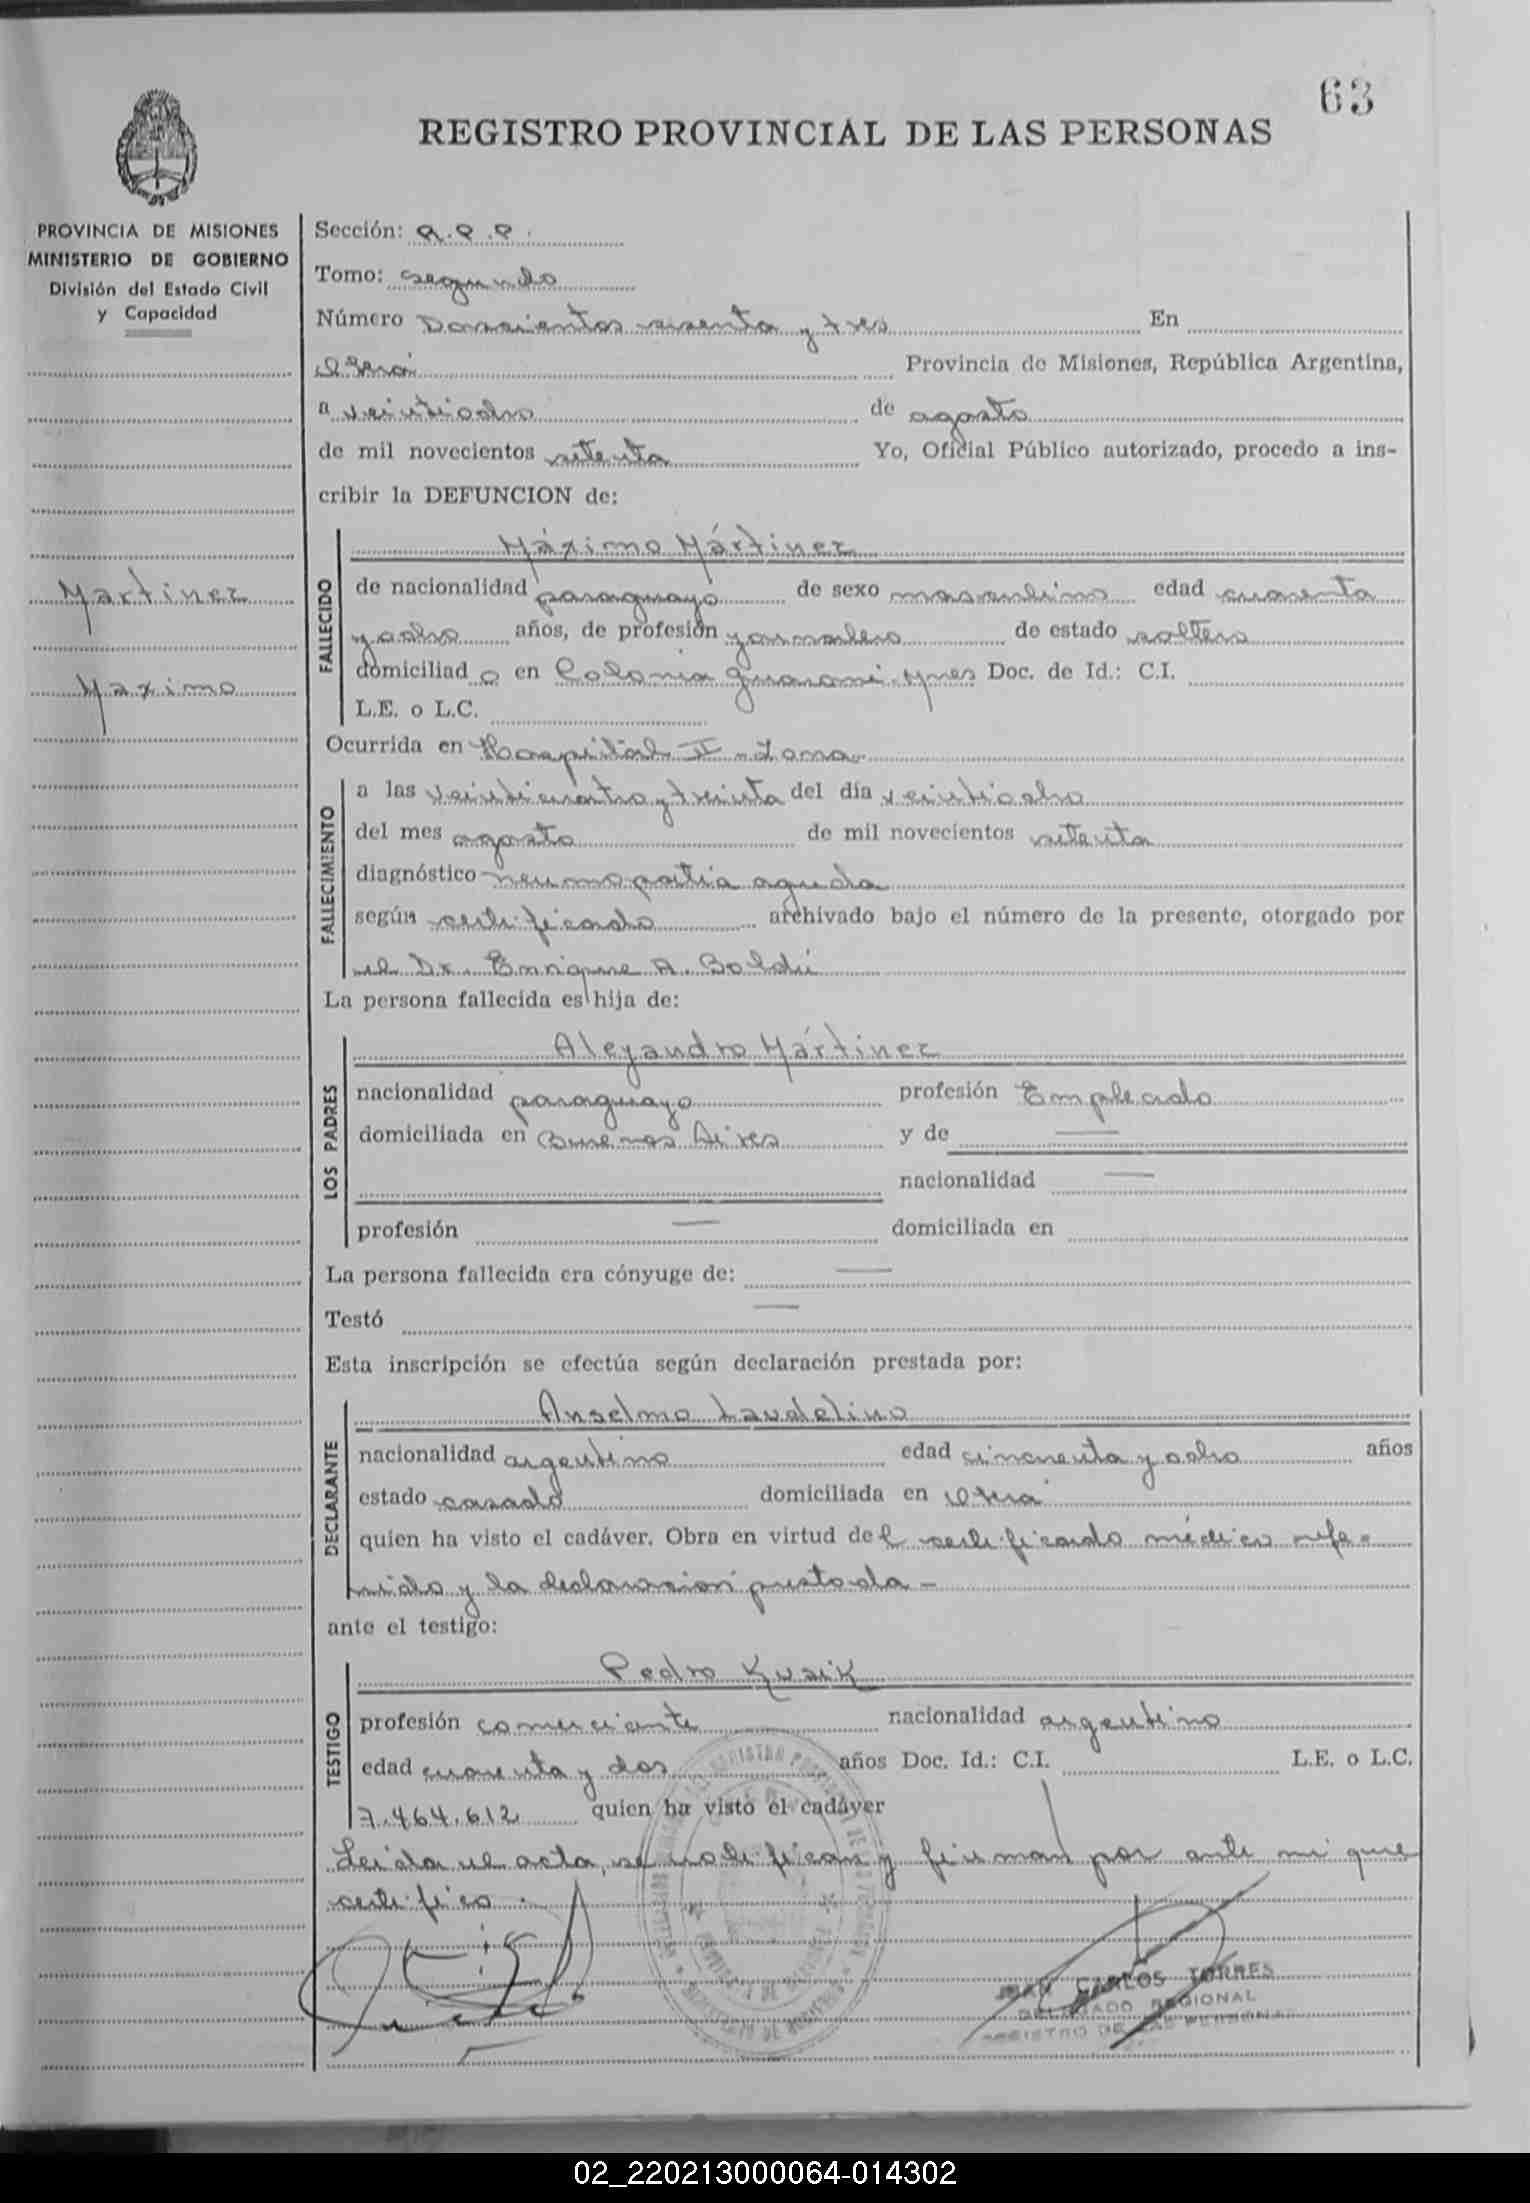 63
REGISTRO PROVINCIAL DE LAS PERSONAS
PROVINCIA DE MISIONES
MINISTERIO DE GOBIERNO
División del Estado Civil
y Capacidad
Martinez
Maximo
Sección:
Tomo: segundo
Número Doscientos sesenta y tres En
Oberá Provincia de Misiones, República Argentina,
a veintiocho de agosto
de mil novecientos setenta Yo, Oficial Público autorizado, procedo a ins-
cribir la DEFUNCION de:
FALLECIDO
Máximo Mártinez
de nacionalidad paraguayo de sexo masculino edad cuarenta
y ocho años, de profesión de estado soltero
domiciliad o en Colonia Guaraní Mnes Doc. de Id.: C.I.
L.E. o L.C.
Ocurrida en Hospital II-Zona
FALLECIMIENTO
a las veinticuatro y treinta del día veintiocho
del mes agosto de mil novecientos setenta
diagnóstico neumopatia aguda
según certificado archivado bajo el número de la presente, otorgado por
el Dr. Enrique A. Boldú
La persona fallecida es hija de:
LOS PADRES
Alejandro Mártinez
nacionalidad paraguayo profesión Empleado
domiciliada en Buenos Aires y de —
nacionalidad —
profesión — domiciliada en
La persona fallecida era cónyuge de: —
Testó —
Esta inscripción se efectúa según declaración prestada por:
DECLARANTE
Anselmo Laudelino
nacionalidad argentino edad cincuenta y ocho años
estado casado domiciliada en Oberá
quien ha visto el cadáver. Obra en virtud del certificado médico refe-
rido y la declaración prestada -
ante el testigo:
TESTIGO
Pedro Kusik
profesión comerciante nacionalidad argentino
edad cuarenta y dos años Doc. Id.: C.I. L.E. o L.C.
7.464.612 quien ha visto el cadáver
Leida el acta, se notifican y firman por ante mi que
certifico.
JUAN CARLOS TORRES
DELEGADO REGIONAL
REGISTRO DE LAS PERSONAS
02_220213000064-014302